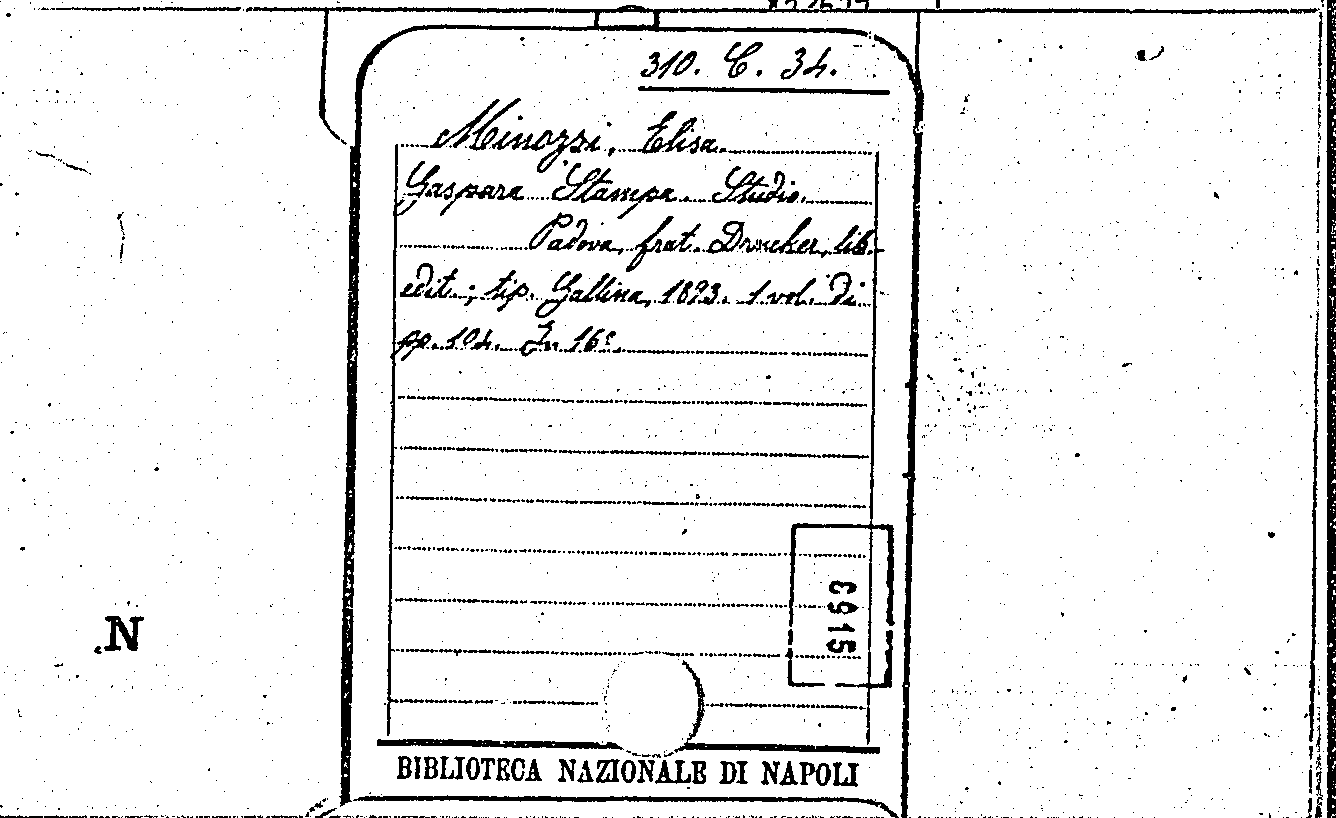 310. C. 34.
Minozzi, Elisa.
Gaspara Stampa. Studio.
Padova, frat. Drucker, lib.
edit.; tip. Gallina, 1893. 1 vol. di
pp. 104. In 16º.
6915
N
BIBLIOTECA NAZIONALE DI NAPOLI